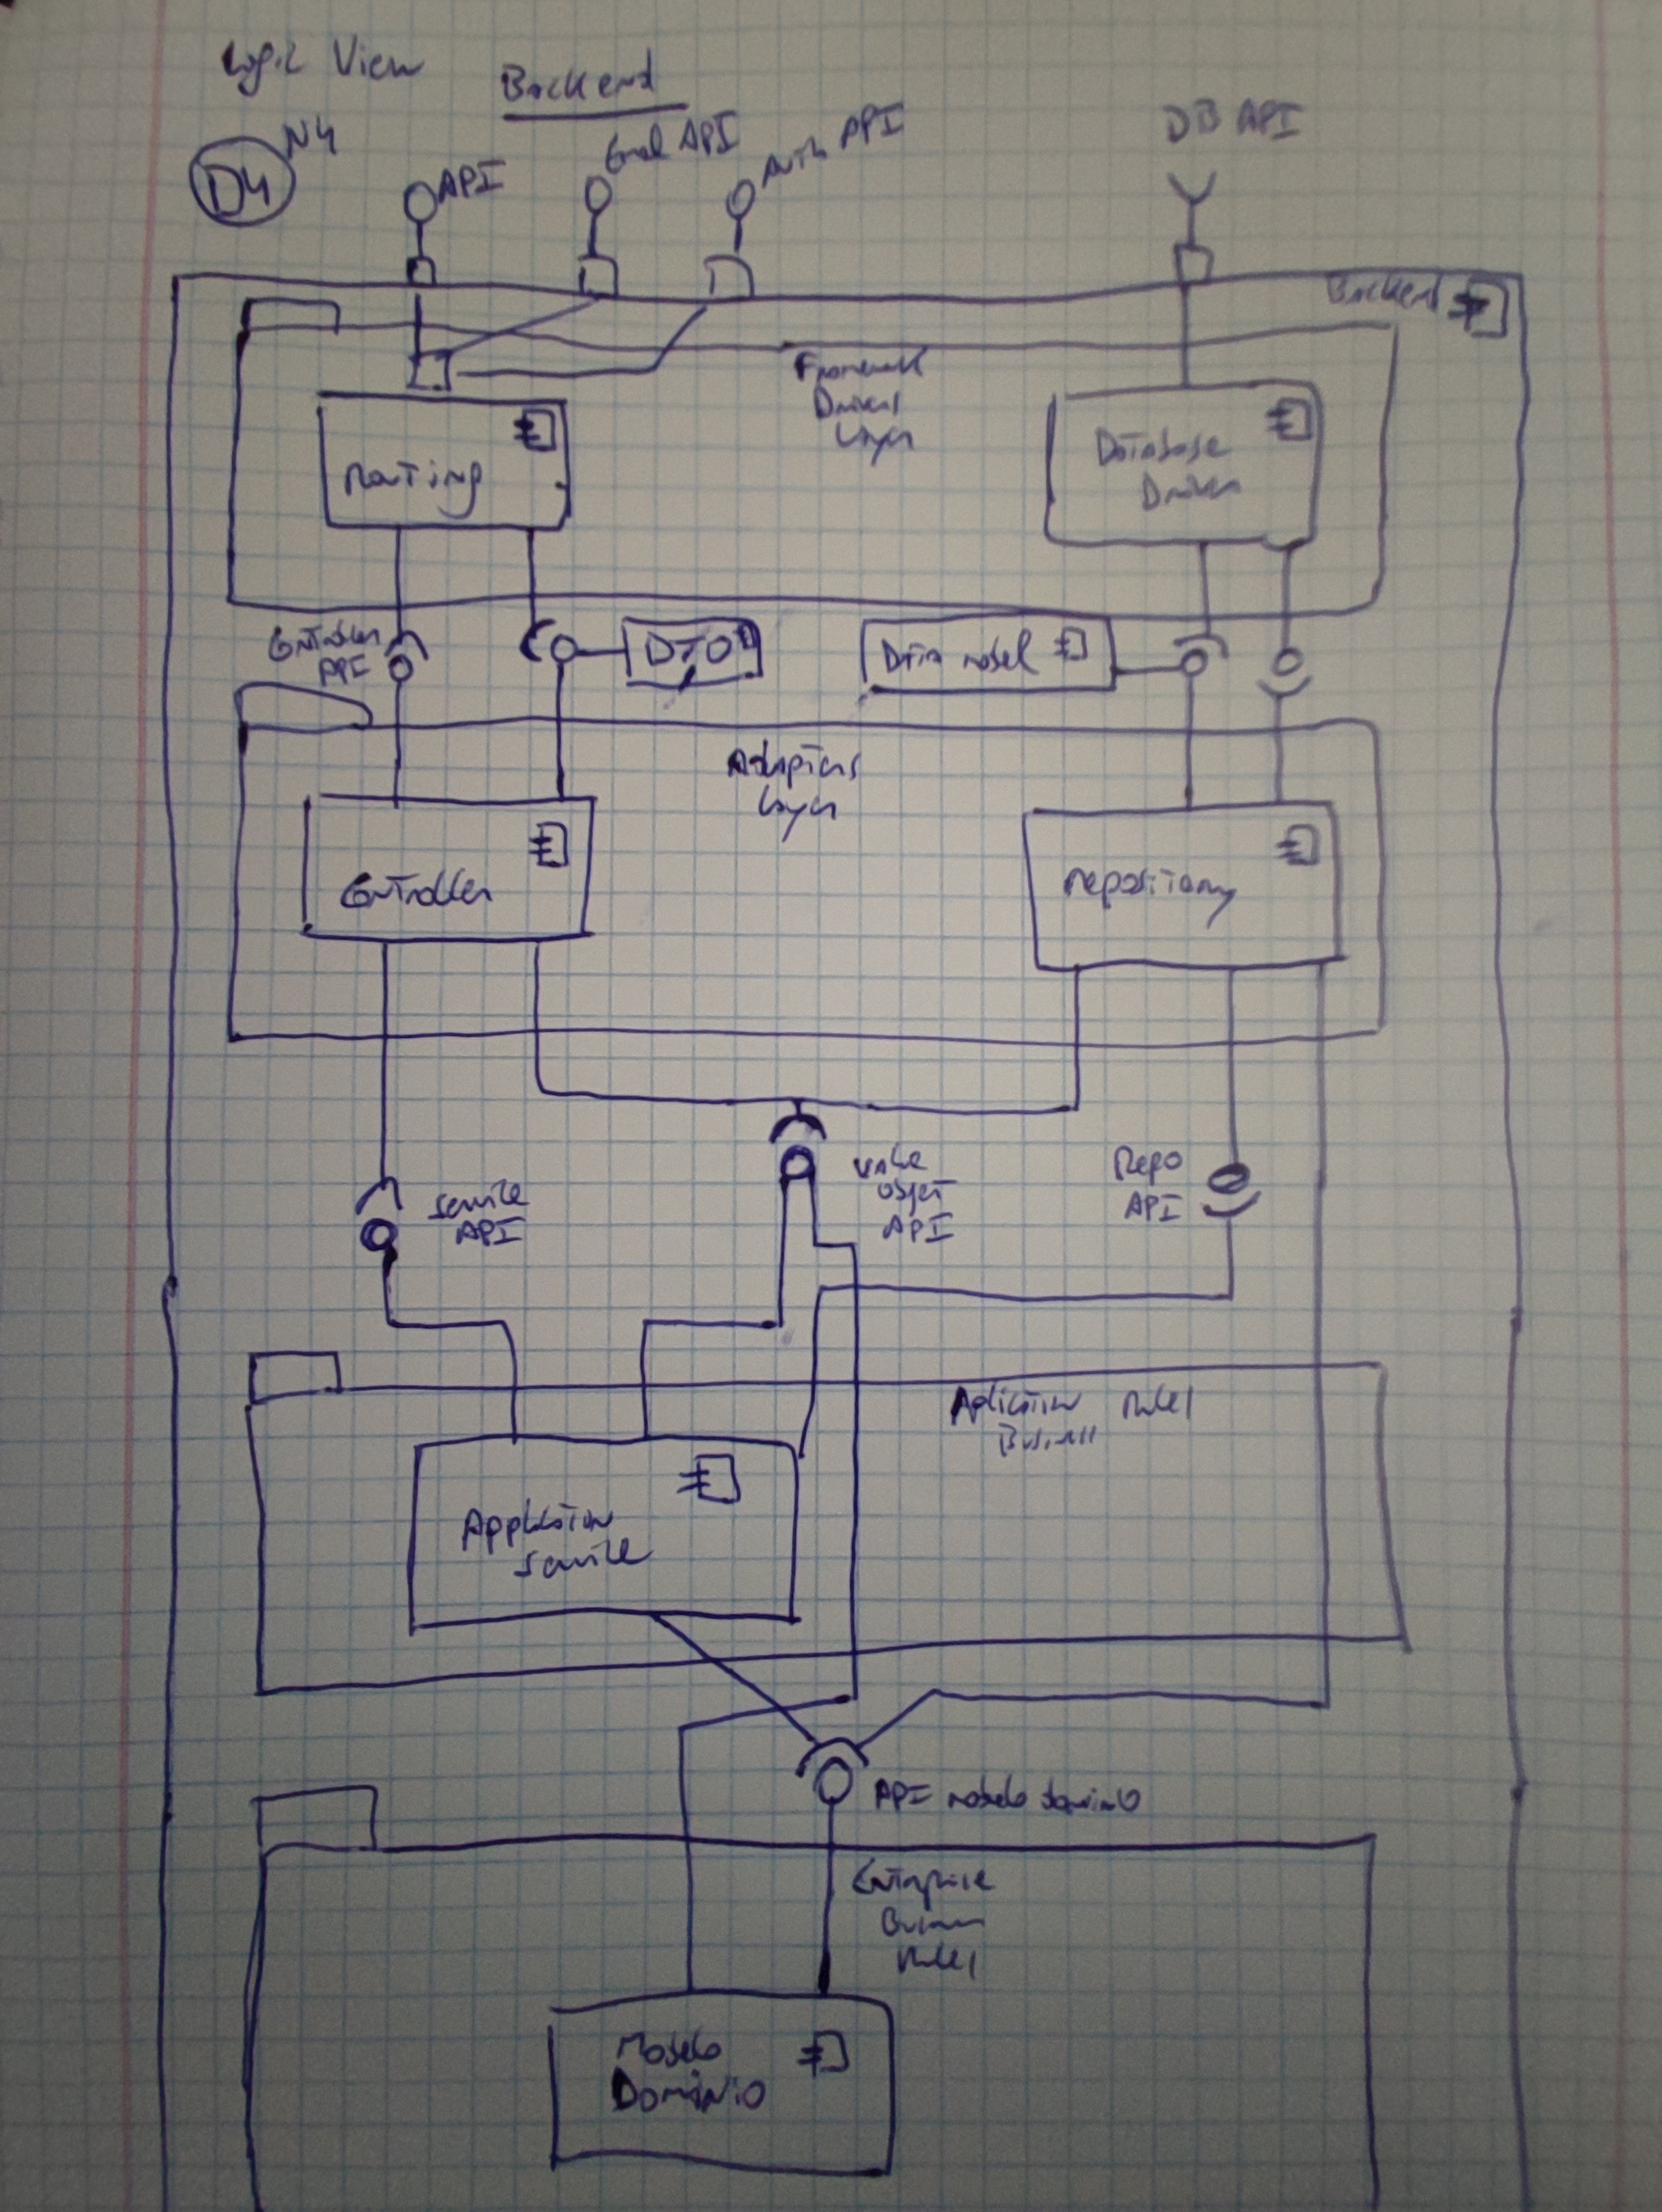 Logic View
Backend
D4
N4
API
Email API
Auth API
DB API
Backend
Framework
Drivers
Layer
Routing
Database
Driver
Controller
API
DTO
Data model
Adapters
Layer
Controller
repository
Service
API
Value
Object
API
Repo
API
Aplication Rules
Business
Application
Service
API modelo dominio
Enterprise
Business
Rules
Modelo
Dominio